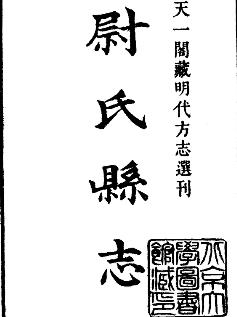 天一閣藏明代方志選刊
尉氏縣志
北京大
學圖書
館藏印